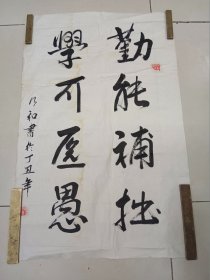 勤能補拙
學可医愚
乃初書於丁丑年